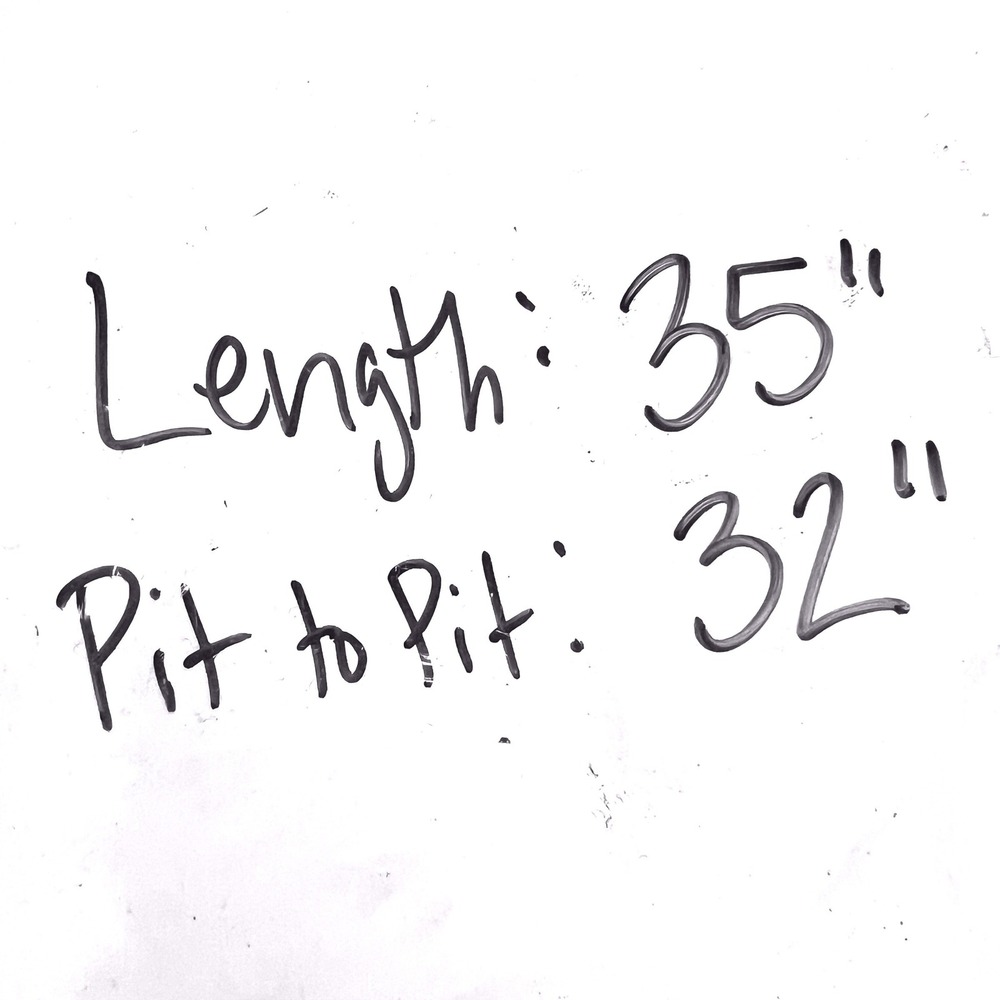 Length: 35"
Pit to Pit: 32"